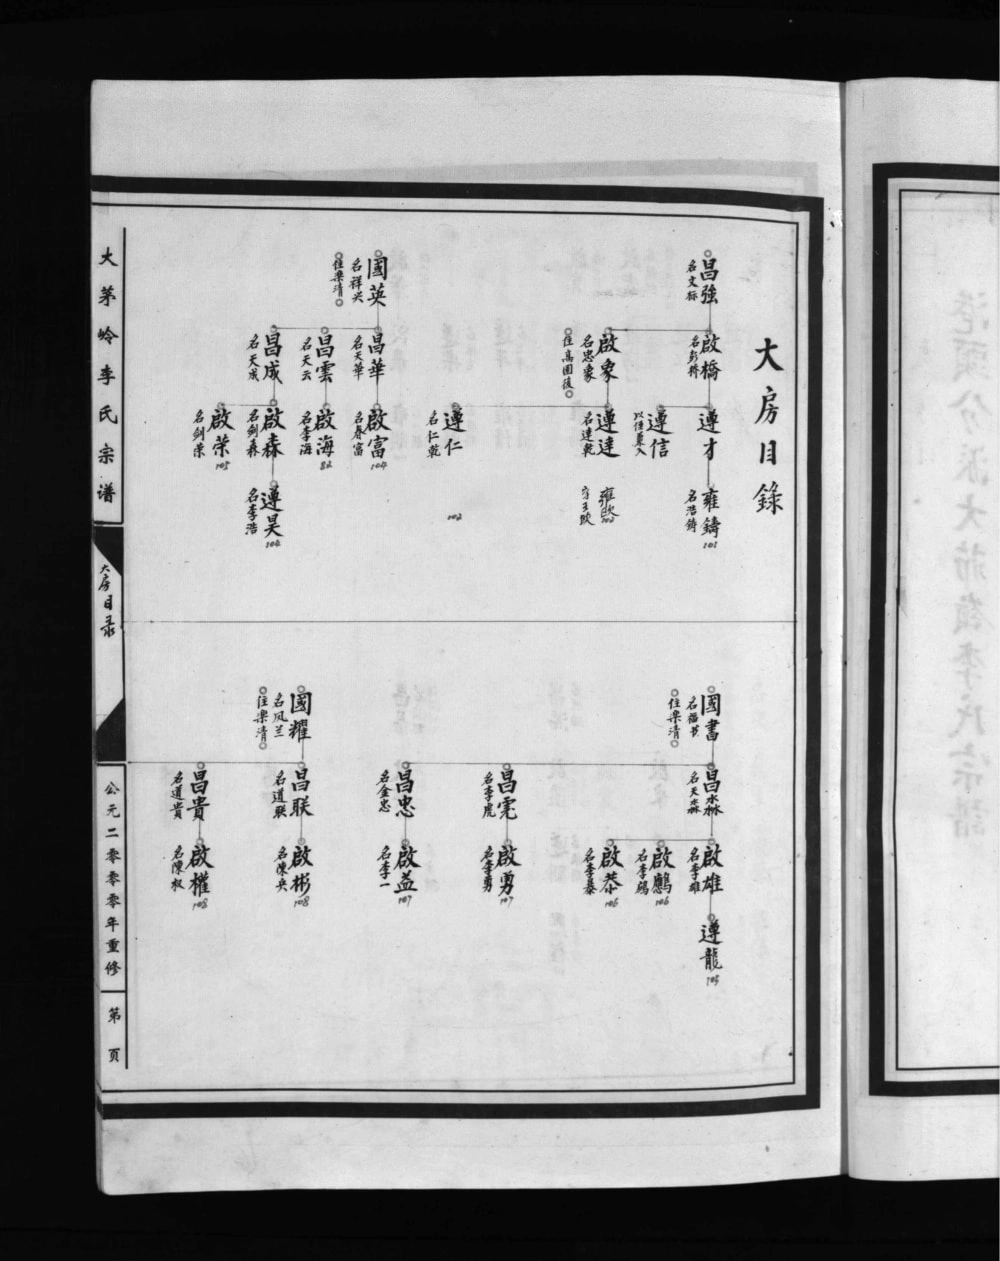 大房目錄
昌強
名文标
啟橋
名彭桥
遵才
雍鑄
名浩铸
101
遵信
啟象
名忠象
遵達
名達乾
雍欧
102
遵仁
名仁乾
102
國英
名祥兴
住樂清
昌華
名天華
啟富
名春富
104
昌雲
名天云
啟海
名李海
82
昌成
名天成
啟森
名剑森
遵昊
名李浩
104
啟荣
名剑荣
105
國書
名福书
住樂清
昌淼
名天淼
啟雄
名李雄
遵龍
105
啟鸝
106
啟恭
名李恭
106
昌虎
名李虎
啟勇
名李勇
107
昌忠
名金忠
啟益
名李一
107
國耀
名凤兰
住樂清
昌联
名道联
啟彬
名陳央
108
昌貴
名道贵
啟權
名陳权
108
大茅岭李氏宗谱
大房目录
公元二零零零年重修
第 頁